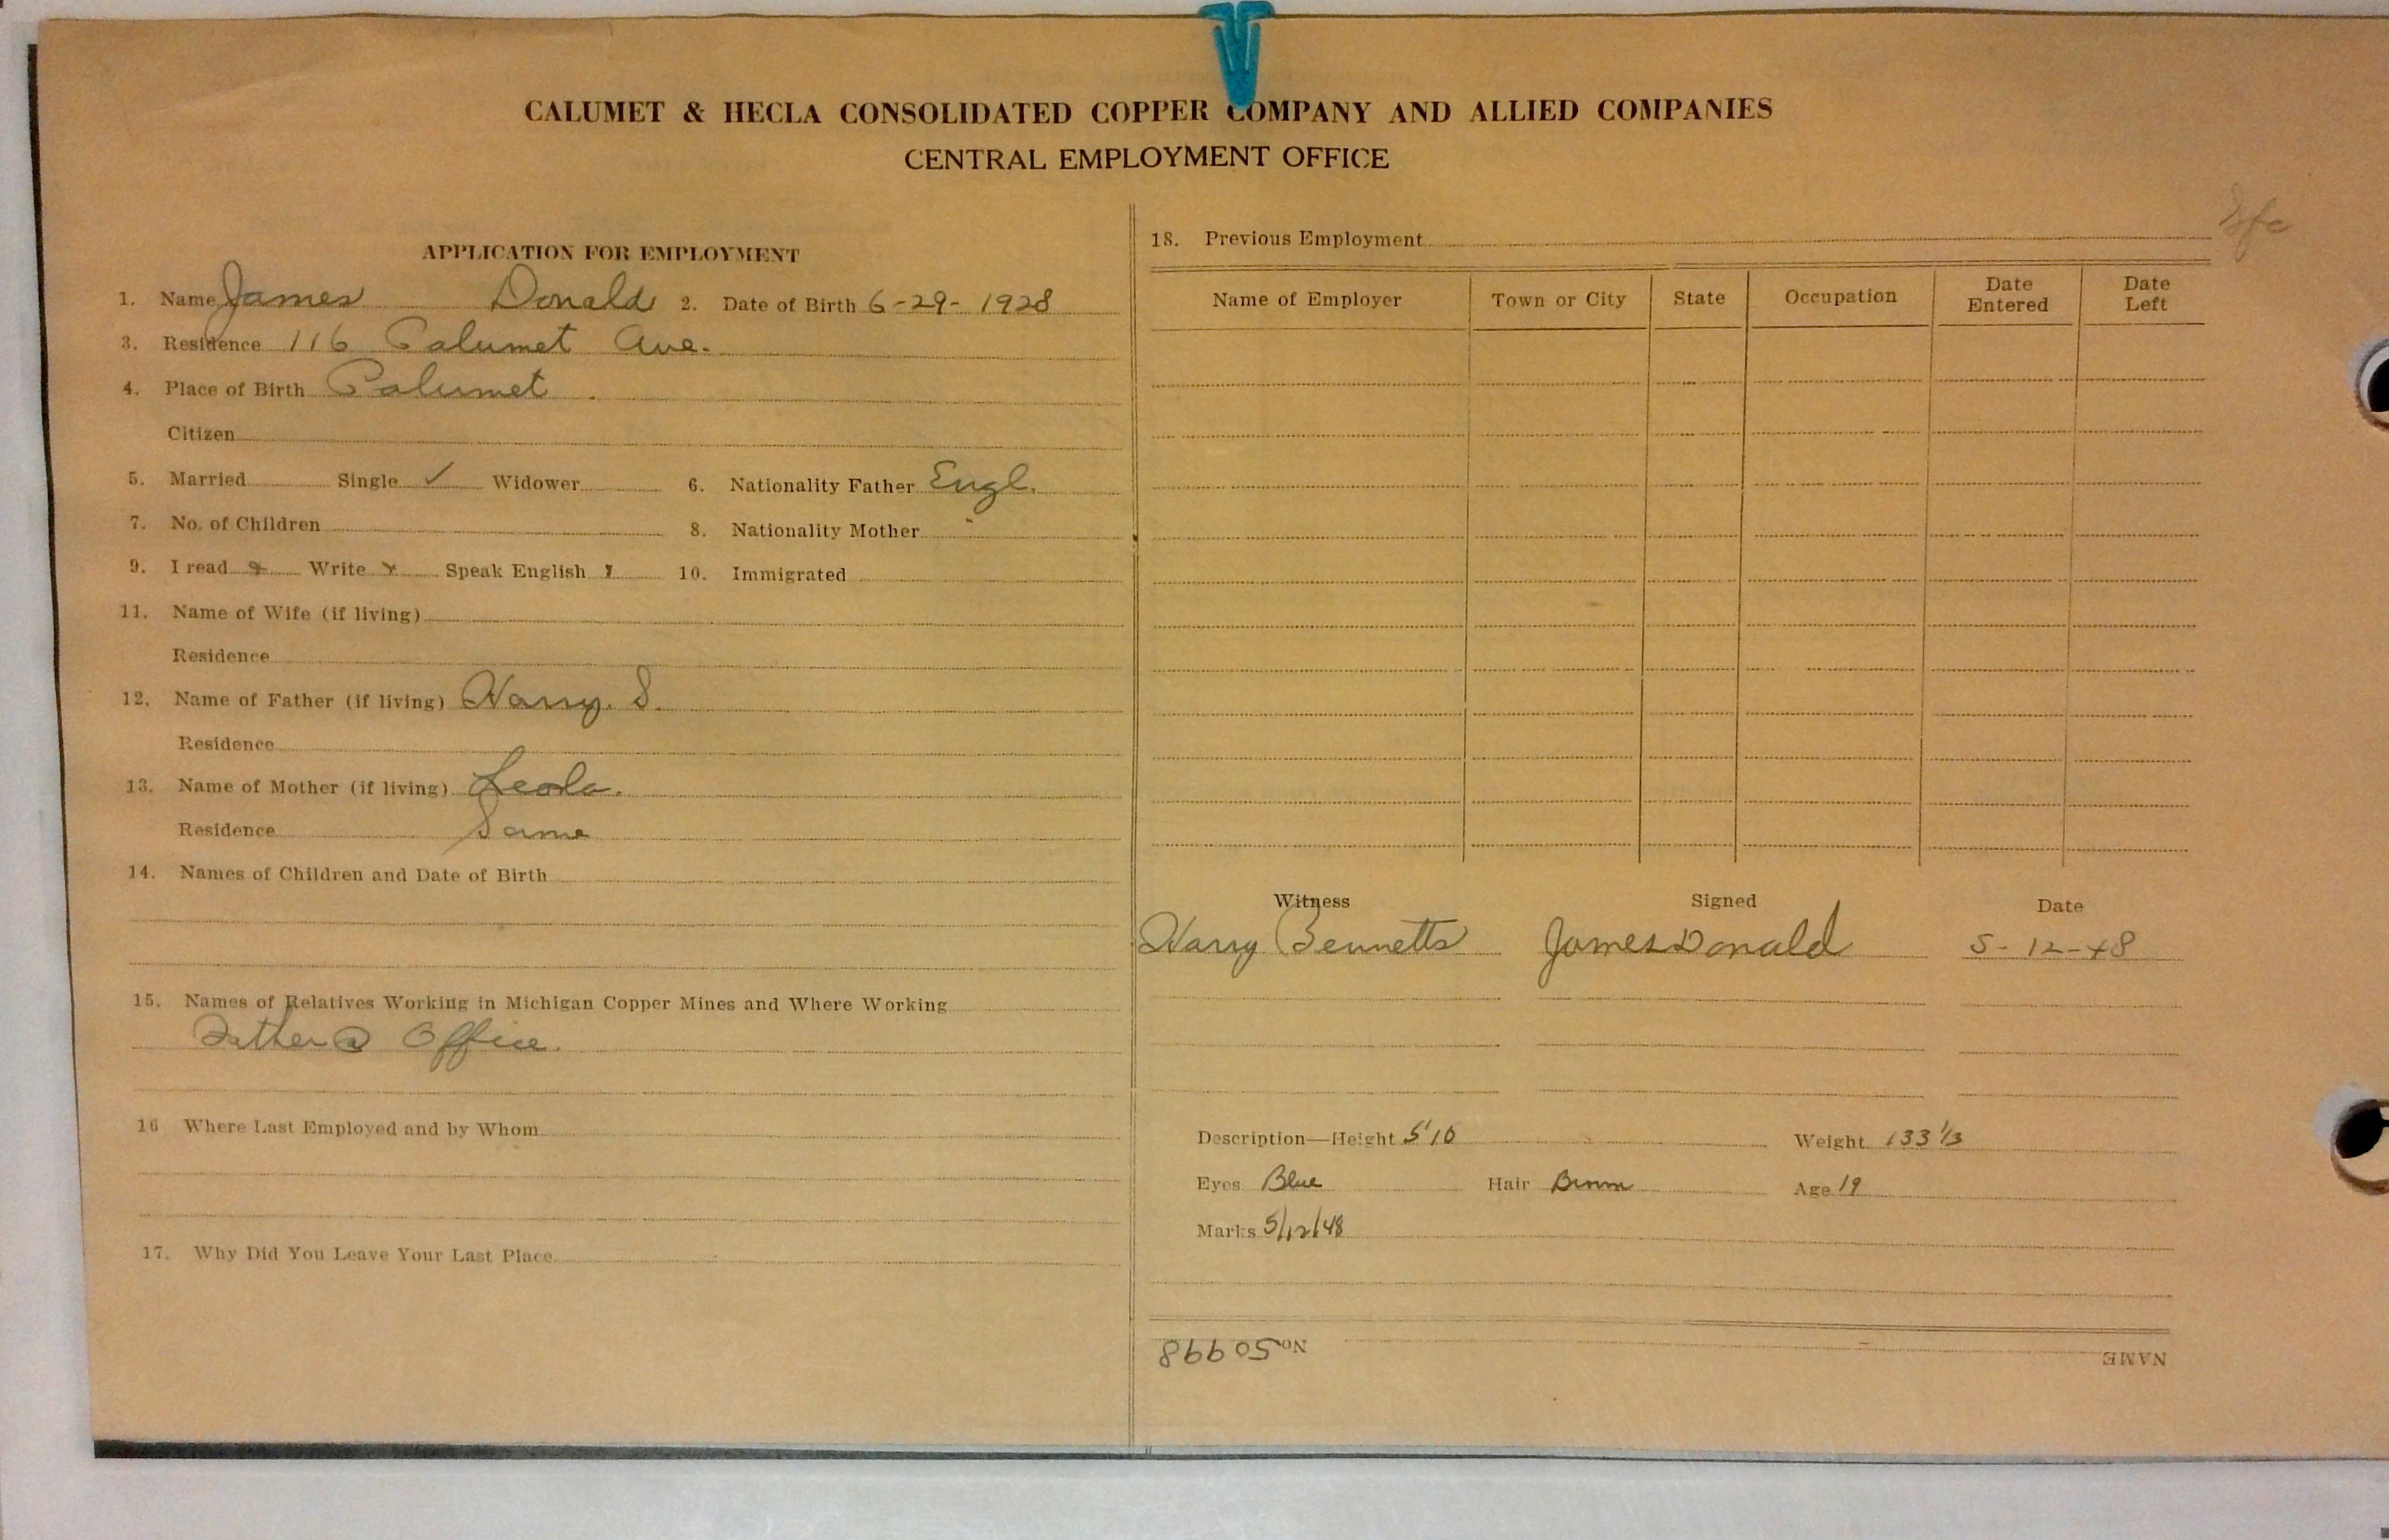 CALUMET & HECLA CONSOLIDATED COPPER COMPANY AND ALLIED COMPANIES
CENTRAL EMPLOYMENT OFFICE
APPLICATION FOR EMPLOYMENT
1. Name James Donald 2. Date of Birth 6-29-1928
3. Residence 116 Calumet Ave.
4. Place of Birth Calumet.
Citizen
5. Married Single ✓ Widower 6. Nationality Father Engl.
7. No. of Children 8. Nationality Mother "
9. I read Write Speak English 10. Immigrated
11. Name of Wife (if living)
Residence
12. Name of Father (if living) Harry. S.
Residence
13. Name of Mother (if living) Leola.
Residence Same
14. Names of Children and Date of Birth
15. Names of Relatives Working in Michigan Copper Mines and Where Working
Father @ Office.
16 Where Last Employed and by Whom
17. Why Did You Leave Your Last Place
18. Previous Employment
Name of Employer Town or City State Occupation Date Entered Date Left
Witness Signed Date
Harry Bennetts James Donald 5-12-48
Description—Height 5'10 Weight 133 1/3
Eyes Blue Hair Brown Age 19
Marks 5/12/48
NAME No 50998